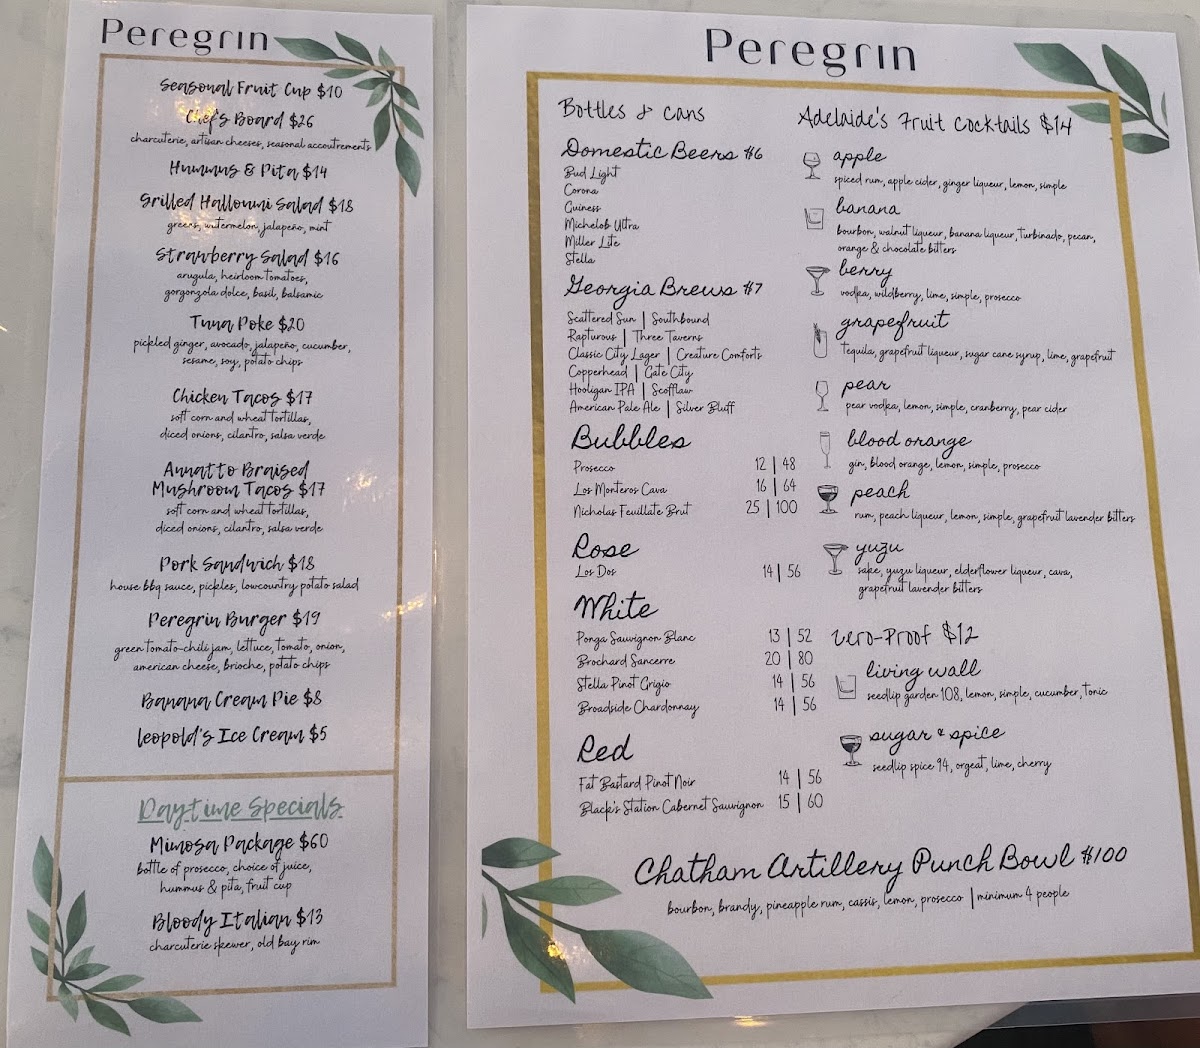 Peregrin
Seasonal Fruit Cup $10
Chef's Board $26
charcuterie, artisan cheeses, seasonal accoutrements
Hummus & Pita $14
Grilled Halloumi Salad $18
greens, watermelon, jalapeño, mint
Strawberry Salad $16
arugula, heirloom tomatoes,
gorgonzola dolce, basil, balsamic
Tuna Poke $20
pickled ginger, avocado, jalapeño, cucumber,
sesame, soy, potato chips
Chicken Tacos $17
soft corn and wheat tortillas,
diced onions, cilantro, salsa verde
Annatto Braised
Mushroom Tacos $17
soft corn and wheat tortillas,
diced onions, cilantro, salsa verde
Pork Sandwich $18
house bbq sauce, pickles, lowcountry potato salad
Peregrin Burger $19
green tomato-chili jam, lettuce, tomato, onion,
american cheese, brioche, potato chips
Banana Cream Pie $8
leopold's Ice Cream $5
Daytime Specials
Mimosa Package $60
bottle of prosecco, choice of juice,
hummus & pita, fruit cup
Bloody Italian $13
charcuterie skewer, old bay rim
Peregrin
Bottles & cans
Domestic Beers $6
Bud Light
Corona
Guiness
Michelob Ultra
Miller Lite
Stella
Georgia Brews $7
Scattered Sun | Southbound
Rapturous | Three Taverns
Classic City Lager | Creature Comforts
Copperhead | Gate City
Hooligan IPA | Scofflaw
American Pale Ale | Silver Bluff
Bubbles
Prosecco 12 | 48
Los Monteros Cava 16 | 64
Nicholas Feuillate Brut 25 | 100
Rose
Los Dos 14 | 56
White
Ponga Sauvignon Blanc 13 | 52
Brochard Sancerre 20 | 80
Stella Pinot Grigio 14 | 56
Broadside Chardonnay 14 | 56
Red
Fat Bastard Pinot Noir 14 | 56
Black's Station Cabernet Sauvignon 15 | 60
Adelaide's Fruit Cocktails $14
apple
spiced rum, apple cider, ginger liqueur, lemon, simple
banana
bourbon, walnut liqueur, banana liqueur, turbinado, pecan,
orange & chocolate bitters
berry
vodka, wildberry, lime, simple, prosecco
grapefruit
Tequila, grapefruit liqueur, sugar cane syrup, lime, grapefruit
pear
pear vodka, lemon, simple, cranberry, pear cider
blood orange
gin, blood orange, lemon, simple, prosecco
peach
rum, peach liqueur, lemon, simple, grapefruit lavender bitters
yuzu
sake, yuzu liqueur, elderflower liqueur, cava,
grapefruit lavender bitters
zero-Proof $12
living wall
seedlip garden 108, lemon, simple, cucumber, tonic
sugar & spice
seedlip spice 94, orgeat, lime, cherry
Chatham Artillery Punch Bowl $100
bourbon, brandy, pineapple rum, cassis, lemon, prosecco | minimum 4 people